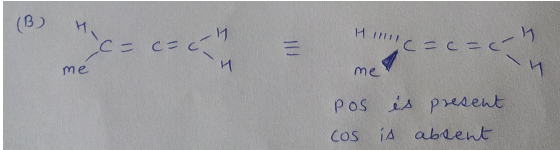 (B) H H H H
C = C = C ≡ C = C = C
me H me H
POS is present
COS is absent